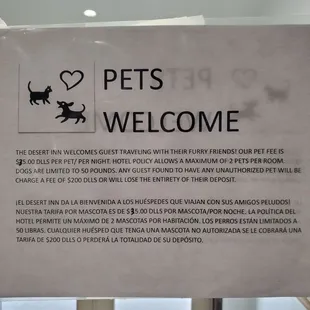 PETS
WELCOME
THE DESERT INN WELCOMES GUEST TRAVELING WITH THEIR FURRY FRIENDS! OUR PET FEE IS
$35.00 DLLS PER PET/ PER NIGHT. HOTEL POLICY ALLOWS A MAXIMUM OF 2 PETS PER ROOM.
DOGS ARE LIMITED TO 50 POUNDS. ANY GUEST FOUND TO HAVE ANY UNAUTHORIZED PET WILL BE
CHARGE A FEE OF $200 DLLS OR WILL LOSE THE ENTIRETY OF THEIR DEPOSIT.
¡EL DESERT INN DA LA BIENVENIDA A LOS HUÉSPEDES QUE VIAJAN CON SUS AMIGOS PELUDOS!
NUESTRA TARIFA POR MASCOTA ES DE $35.00 DLLS POR MASCOTA/POR NOCHE. LA POLÍTICA DEL
HOTEL PERMITE UN MÁXIMO DE 2 MASCOTAS POR HABITACIÓN. LOS PERROS ESTÁN LIMITADOS A
50 LIBRAS. CUALQUIER HUÉSPED QUE TENGA UNA MASCOTA NO AUTORIZADA SE LE COBRARÁ UNA
TARIFA DE $200 DLLS O PERDERÁ LA TOTALIDAD DE SU DEPÓSITO.